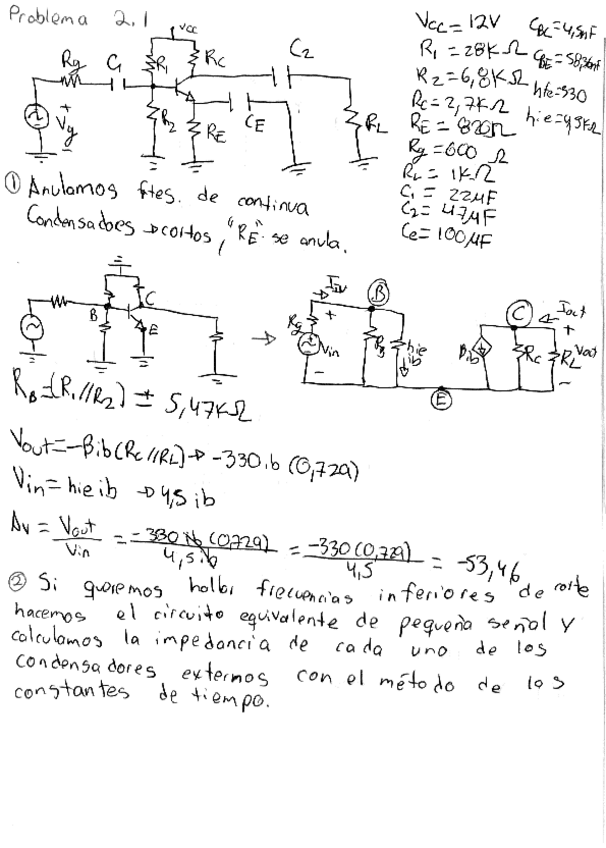 Problema 2.1
Vcc = 12V
R1 = 28KΩ
R2 = 6,8KΩ
Rc = 2,7KΩ
RE = 820Ω
Rg = 600Ω
RL = 1KΩ
C1 = 22μF
C2 = 47μF
Ce = 100μF
CBC = 4,5nF
hie = 4,5KΩ
Vcc
Rg C1 R1 Rc C2
Vg R2 RE CE RL
① Anulamos ftes. de continua
Condensadores → cortos, "RE" se anula.
B C E
Iin B C Iout
Rg Vin RB hie ib Bib Rc RL Vout
E
RB = (R1//R2) = 5,47KΩ
Vout = -Bib(Rc//RL) → -330ib (0,729)
Vin = hie ib → 4,5 ib
Av = Vout/Vin = -330 ib (0,729)/4,5 ib = -330(0,729)/4,5 = -53,46
② Si queremos hallar frecuencias inferiores de corte
hacemos el circuito equivalente de pequeña señal y
calculamos la impedancia de cada uno de los
condensadores externos con el método de las
constantes de tiempo.